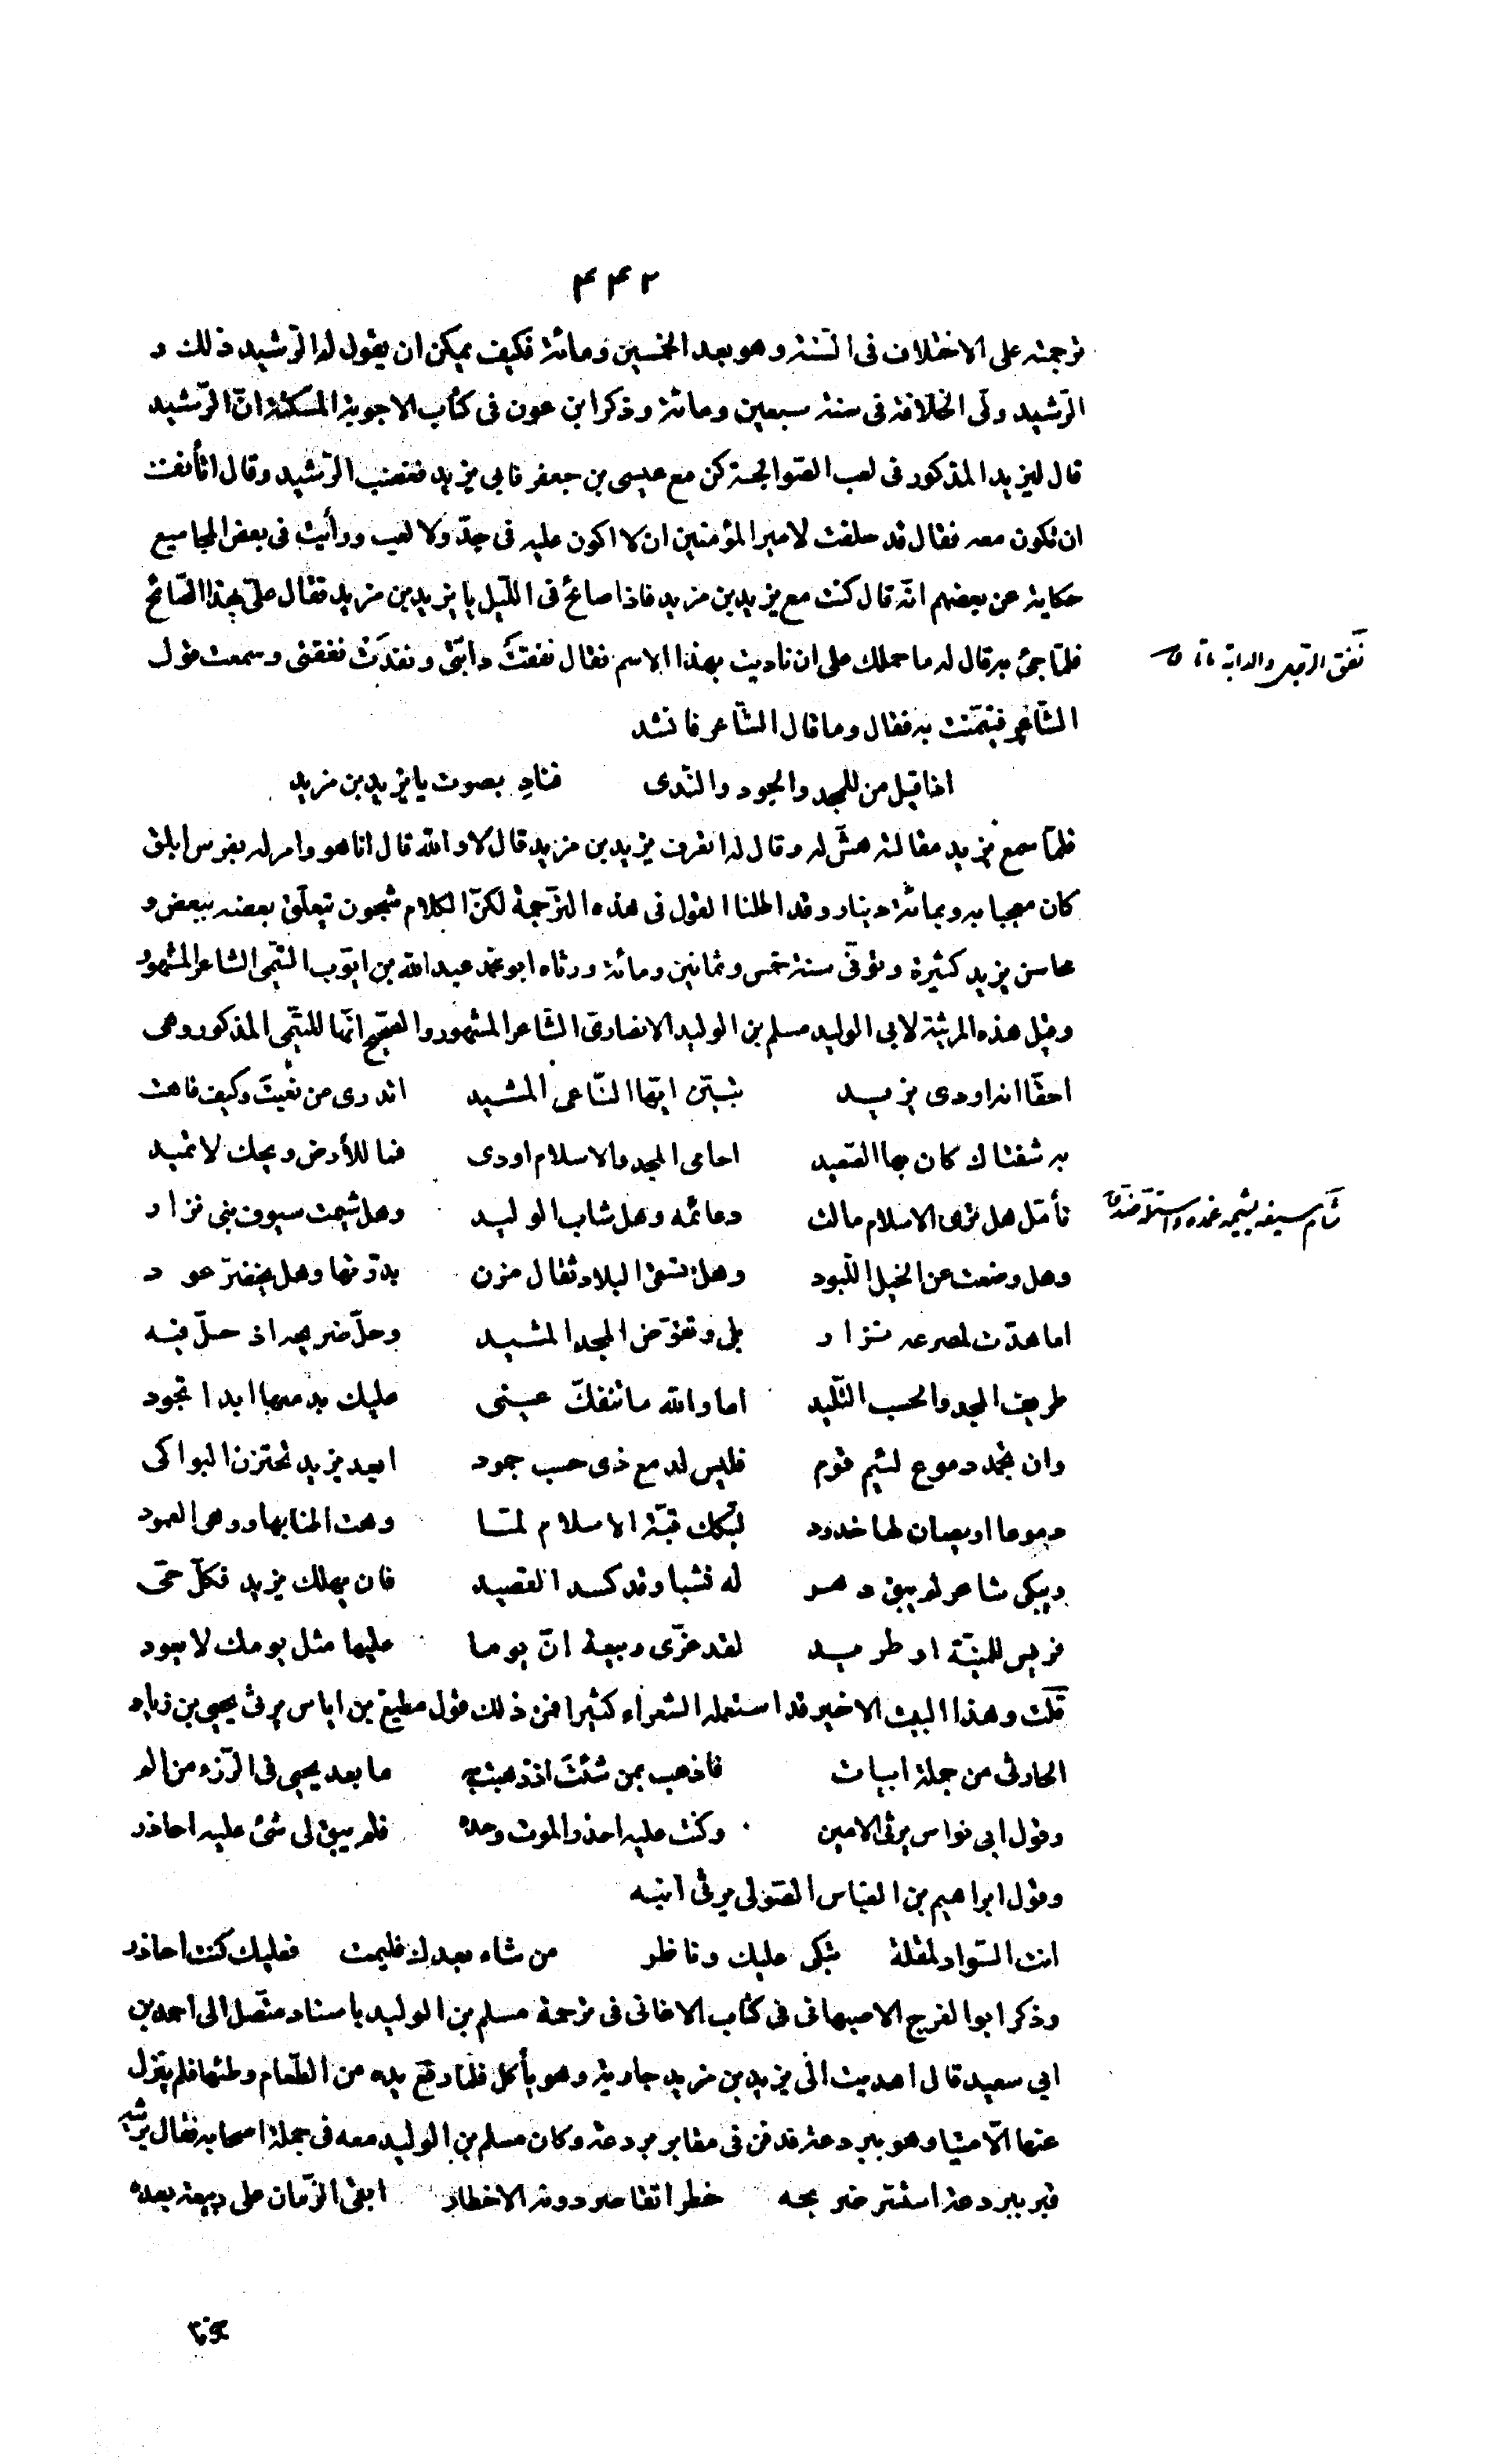 ٤٤٢
ترجمته على الاختلاف فى السّنة وهو بعد الخمسين ومائة فكيف يمكن ان يقول له الرّشيد ذلك و
الرّشيد ولّى الخلافة فى سنة سبعين ومائة وذكر ابن عون فى كتاب الاجوبة المسكتة انّ الرّشيد
قال ليزيد المذكور فى لعب الصّوالجة كن مع عيسى بن جعفر فابى يزيد فغضب الرّشيد وقال اتأنف
ان تكون معه فقال قد حلفت لامير المؤمنين ان لا اكون عليه فى جدّ ولا لعب ورأيت فى بعض المجاميع
حكاية عن بعضهم انّه قال كنت مع يزيد بن مزيد فاذا صائح فى اللّيل يا يزيد بن مزيد فقال علىّ بهذا الصّائح
فلمّا جئ به قال له ما حملك على ان ناديت بهذا الاسم فقال نفقت دابّتى ونفدت نفقتى وسمعت قول
نفق الرجل والدابة ماتا
الشّاعر فتيمّنت به فقال وما قال الشّاعر فانشد
اذا قيل من للمجد والجود والنّدى فناد بصوت يا يزيد بن مزيد
فلمّا سمع يزيد مقالته هشّ له وقال له اتعرف يزيد بن مزيد قال لا والله قال انا هو وامر له بفرس ابلق
كان معجبا به وبمائة دينار وقد اطلنا القول فى هذه التّرجمة لكنّ الكلام شجون يتعلّق بعضه ببعض و
محاسن يزيد كثيرة وتوفّى سنة خمس وثمانين ومائة ورثاه ابو محمّد عبد الله بن ايّوب التّيمى الشاعر المشهور
وقيل هذه المرثية لابى الوليد مسلم بن الوليد الانصارى الشّاعر المشهور والصّحيح انّها للتّيمى المذكور وهى
احقّا انه اودى يزيد تبيّن ايّها النّاعى المشيد اتدرى من نعيت وكيف فاهت
به شفتاك كان بها الصّعيد احامى المجد والاسلام اودى فما للأرض ويحك لا تميد
تأمّل هل ترى الاسلام مالت دعائمه وهل شاب الوليد وهل شيمت سيوف بنى نزار
شام سيفه يشيمه غمده واستلّه ضد
وهل وضعت عن الخيل اللّبود وهل تسقى البلاد ثقال مزن بدرّتها وهل يخضرّ عود
اما هدّت لمصرعه نزار بلى وتقوّض المجد المشيد وحلّ ضريحه اذ حلّ فيه
طريف المجد والحسب التّليد اما والله ما تنفكّ عينى عليك بدمعها ابدا تجود
وان تجمد دموع لئيم قوم فليس لدمع ذى حسب جمود ابعد يزيد تختزن البواكى
دموعا او يصان لها خدود لتبكك قبّة الاسلام لمّا وهت اطنابها ووهى العمود
ويبكى شاعر لم يبق دهر له نشبا وقد كسد القصيد فان يهلك يزيد فكلّ حىّ
فريس للمنيّة او طريد لقد عزّى ربيعة انّ يوما عليها مثل يومك لا يعود
قلت وهذا البيت الاخير قد استعمله الشعراء كثيرا فمن ذلك قول مطيع بن اياس يرثى يحيى بن زياد
الحارثى من جملة ابيات فاذهب بمن شئت اذ ذهبت به ما بعد يحيى فى الرّزء من الم
وقول ابى نواس يرثى الامين وكنت عليه احذر الموت وحده فلم يبق لى شئ عليه احاذر
وقول ابراهيم بن العبّاس الصّولى يرثى ابنه
انت السّواد لمقلة تبكى عليك وناظر من شاء بعدك فليمت فعليك كنت احاذر
وذكر ابو الفرج الاصبهانى فى كتاب الاغانى فى ترجمة مسلم بن الوليد باسناد متّصل الى احمد بن
ابى سعيد قال اهديت الى يزيد بن مزيد جارية وهو يأكل فلمّا رفع يده من الطّعام وطئها فلم ينزل
عنها الّا ميتا وهو ببردعة فدفن فى مقابر بردعة وكان مسلم بن الوليد معه فى جملة اصحابه فقال يرثيه
قبر ببردعة استتر ضريحه خطرا تقاصر دونه الاخطار ابقى الزّمان على ربيعة بعده